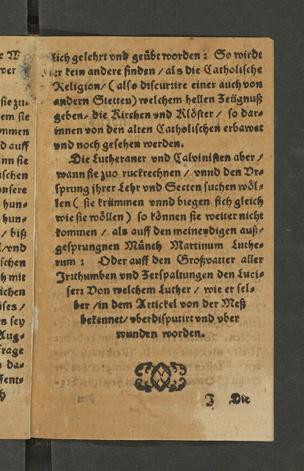 lich gelehrt vnd geübt worden: So wirdt
er kein andere finden / als die Catholische
Religion / ( also discurire einer auch von
andern Secten) welchem hellen Zeügnuß
geben, die Kirchen vnd Klöster / so dar-
innen von den alten Catholischen erbawet
vnd noch gesehen werden.
Die Lutheraner vnd Calvinisten aber /
wann sie zuo ruckrechnen / vnnd den Vr-
sprung jhrer Lehr vnd Secten suchen wöl-
len ( sie krümmen vnnd biegen sich gleich
wie sie wöllen) so können sie weiter nicht
kommen / als auff den meineydigen auß-
gesprungnen Münch Martinum Luthe-
rum: Oder auff den Großvatter aller
Irrthumben vnd Zerspaltungen den Luci-
fer: Von welchem Luther / wie er sel-
ber / in dem Artickel von der Meß
bekennet / vberdisputirt vnd vber
wunden worden.
J Die